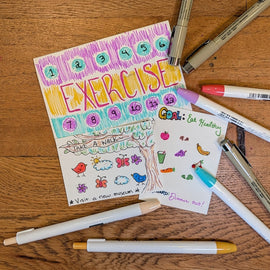 1 2 3 4 5 6
EXERCISE
7 8 9 10 11 12
TAKE A WALK
Goal: Eat Healthy
★ Visit a new museum ★